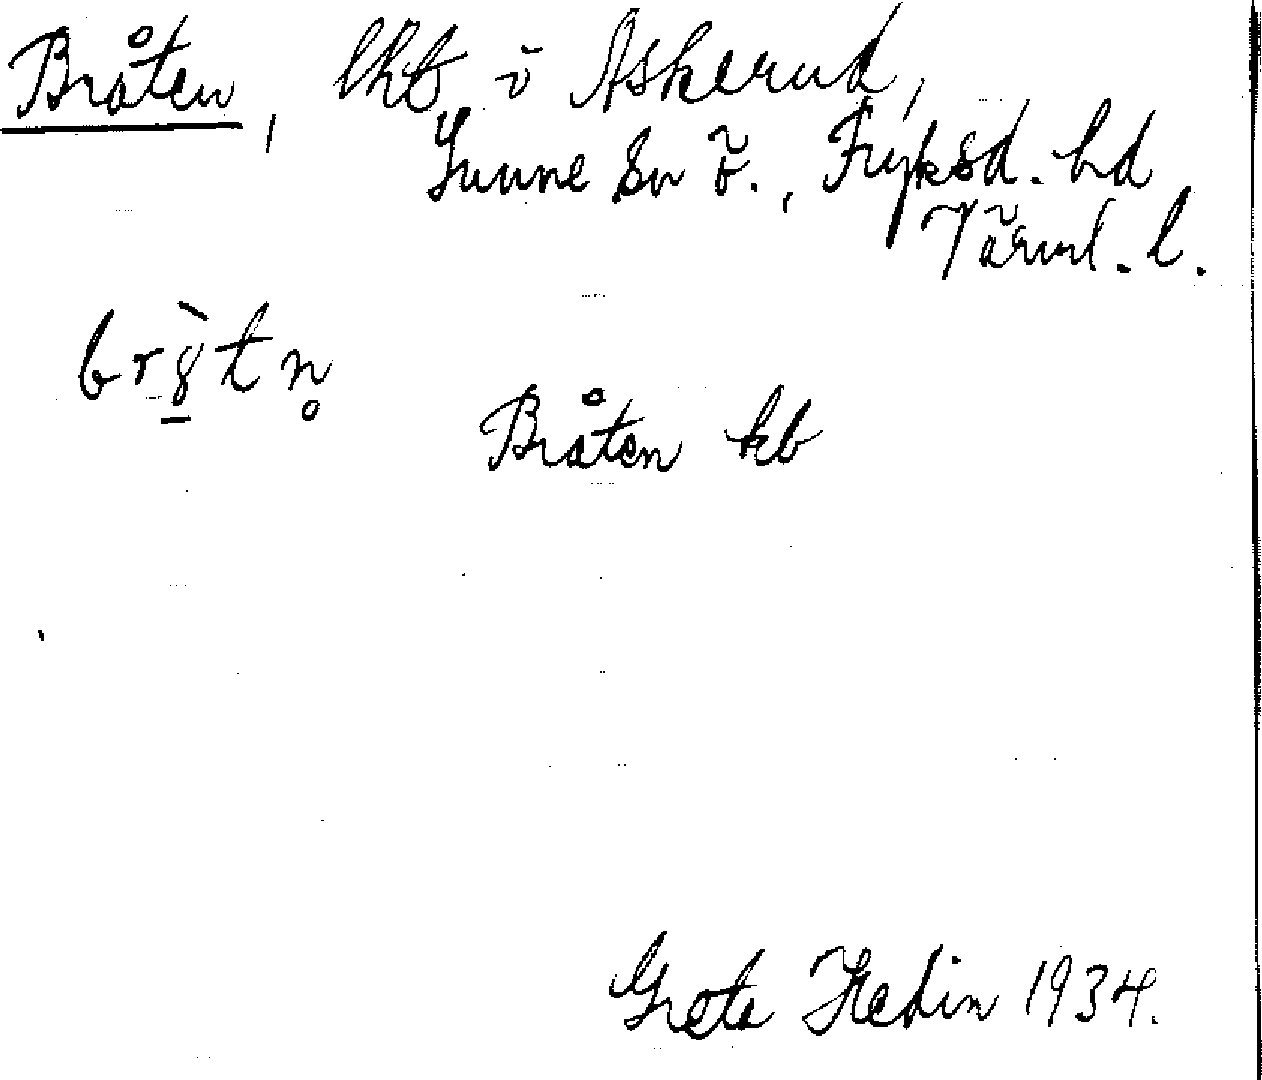 Bråten, lht i Askerud,
Sunne sn ö., Fryksd. hd
Värml. l.
br8̱̀tn̥
Bråten kb
Greta Hedin 1934.